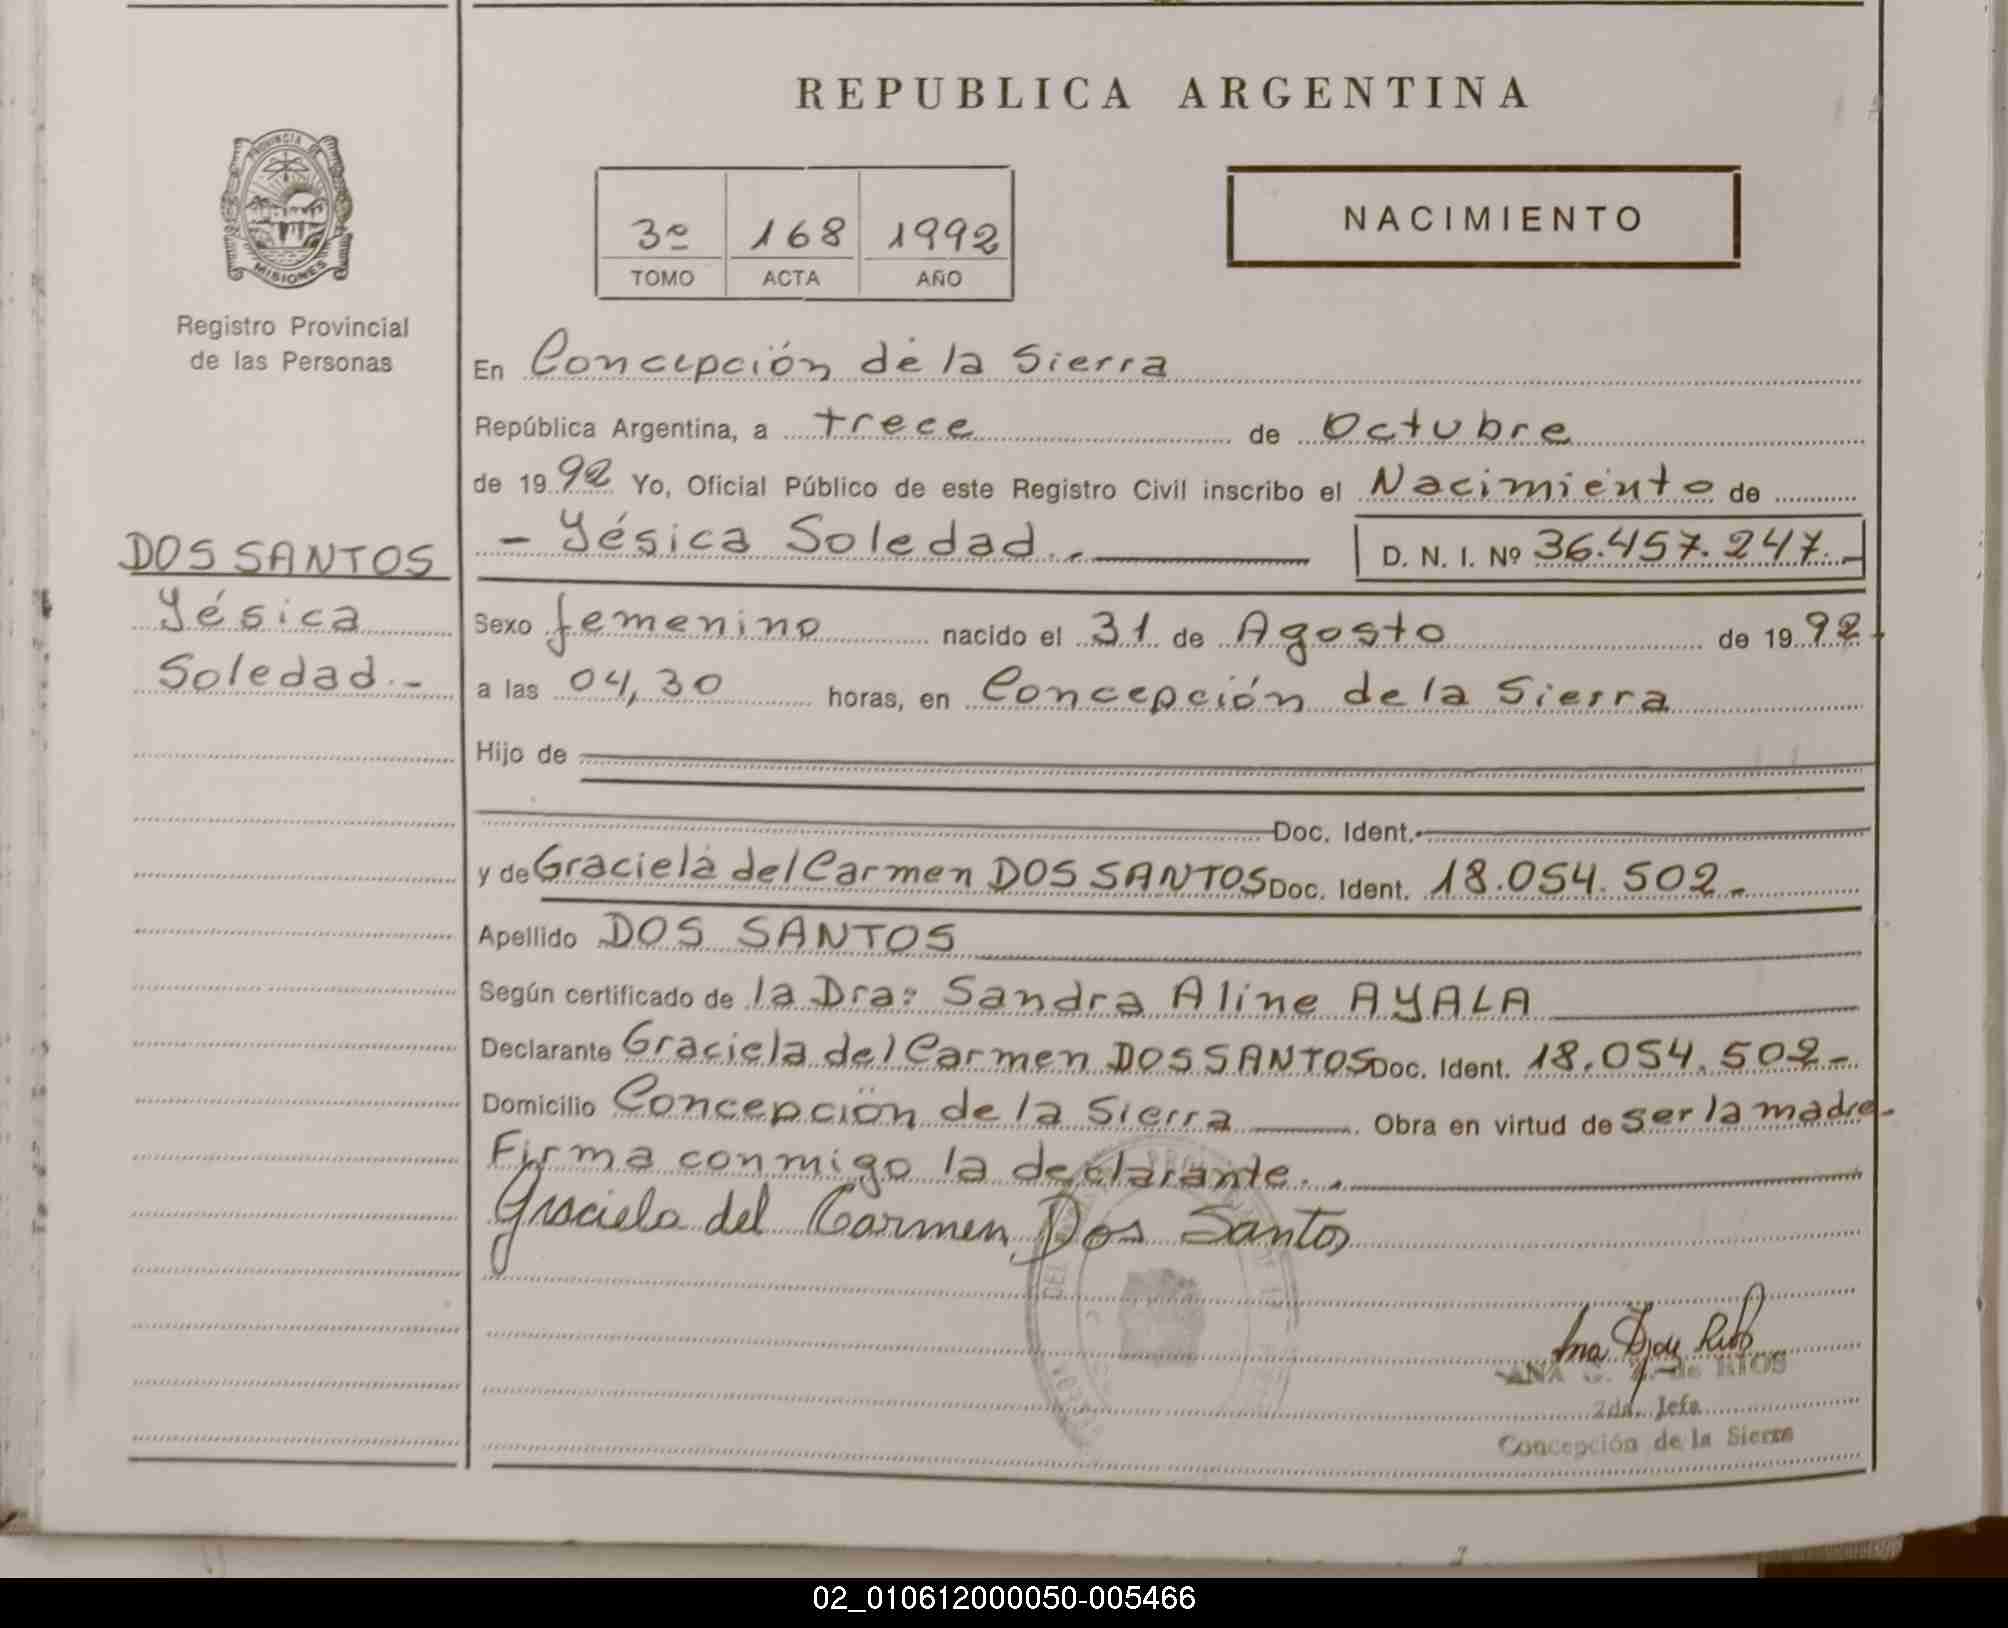 REPUBLICA ARGENTINA
PROVINCIA DE MISIONES
Registro Provincial
de las Personas
3º 168 1992
TOMO ACTA AÑO
NACIMIENTO
En Concepción de la Sierra
República Argentina, a trece de Octubre
de 1992 Yo, Oficial Público de este Registro Civil inscribo el Nacimiento de
- Yésica Soledad.- D. N. I. Nº 36.457.247.-
DOS SANTOS
Yésica
Soledad.-
Sexo femenino nacido el 31 de Agosto de 1992
a las 04,30 horas, en Concepción de la Sierra
Hijo de
Doc. Ident.
y de Graciela del Carmen DOS SANTOS Doc. Ident. 18.054.502.-
Apellido DOS SANTOS
Según certificado de la Dra: Sandra Aline AYALA
Declarante Graciela del Carmen DOS SANTOS Doc. Ident. 18.054.502-
Domicilio Concepción de la Sierra. Obra en virtud de ser la madre-
Firma conmigo la declarante.
Graciela del Carmen Dos Santos
ANA de RIOS
2da. Jefa
Concepción de la Sierra
02_010612000050-005466